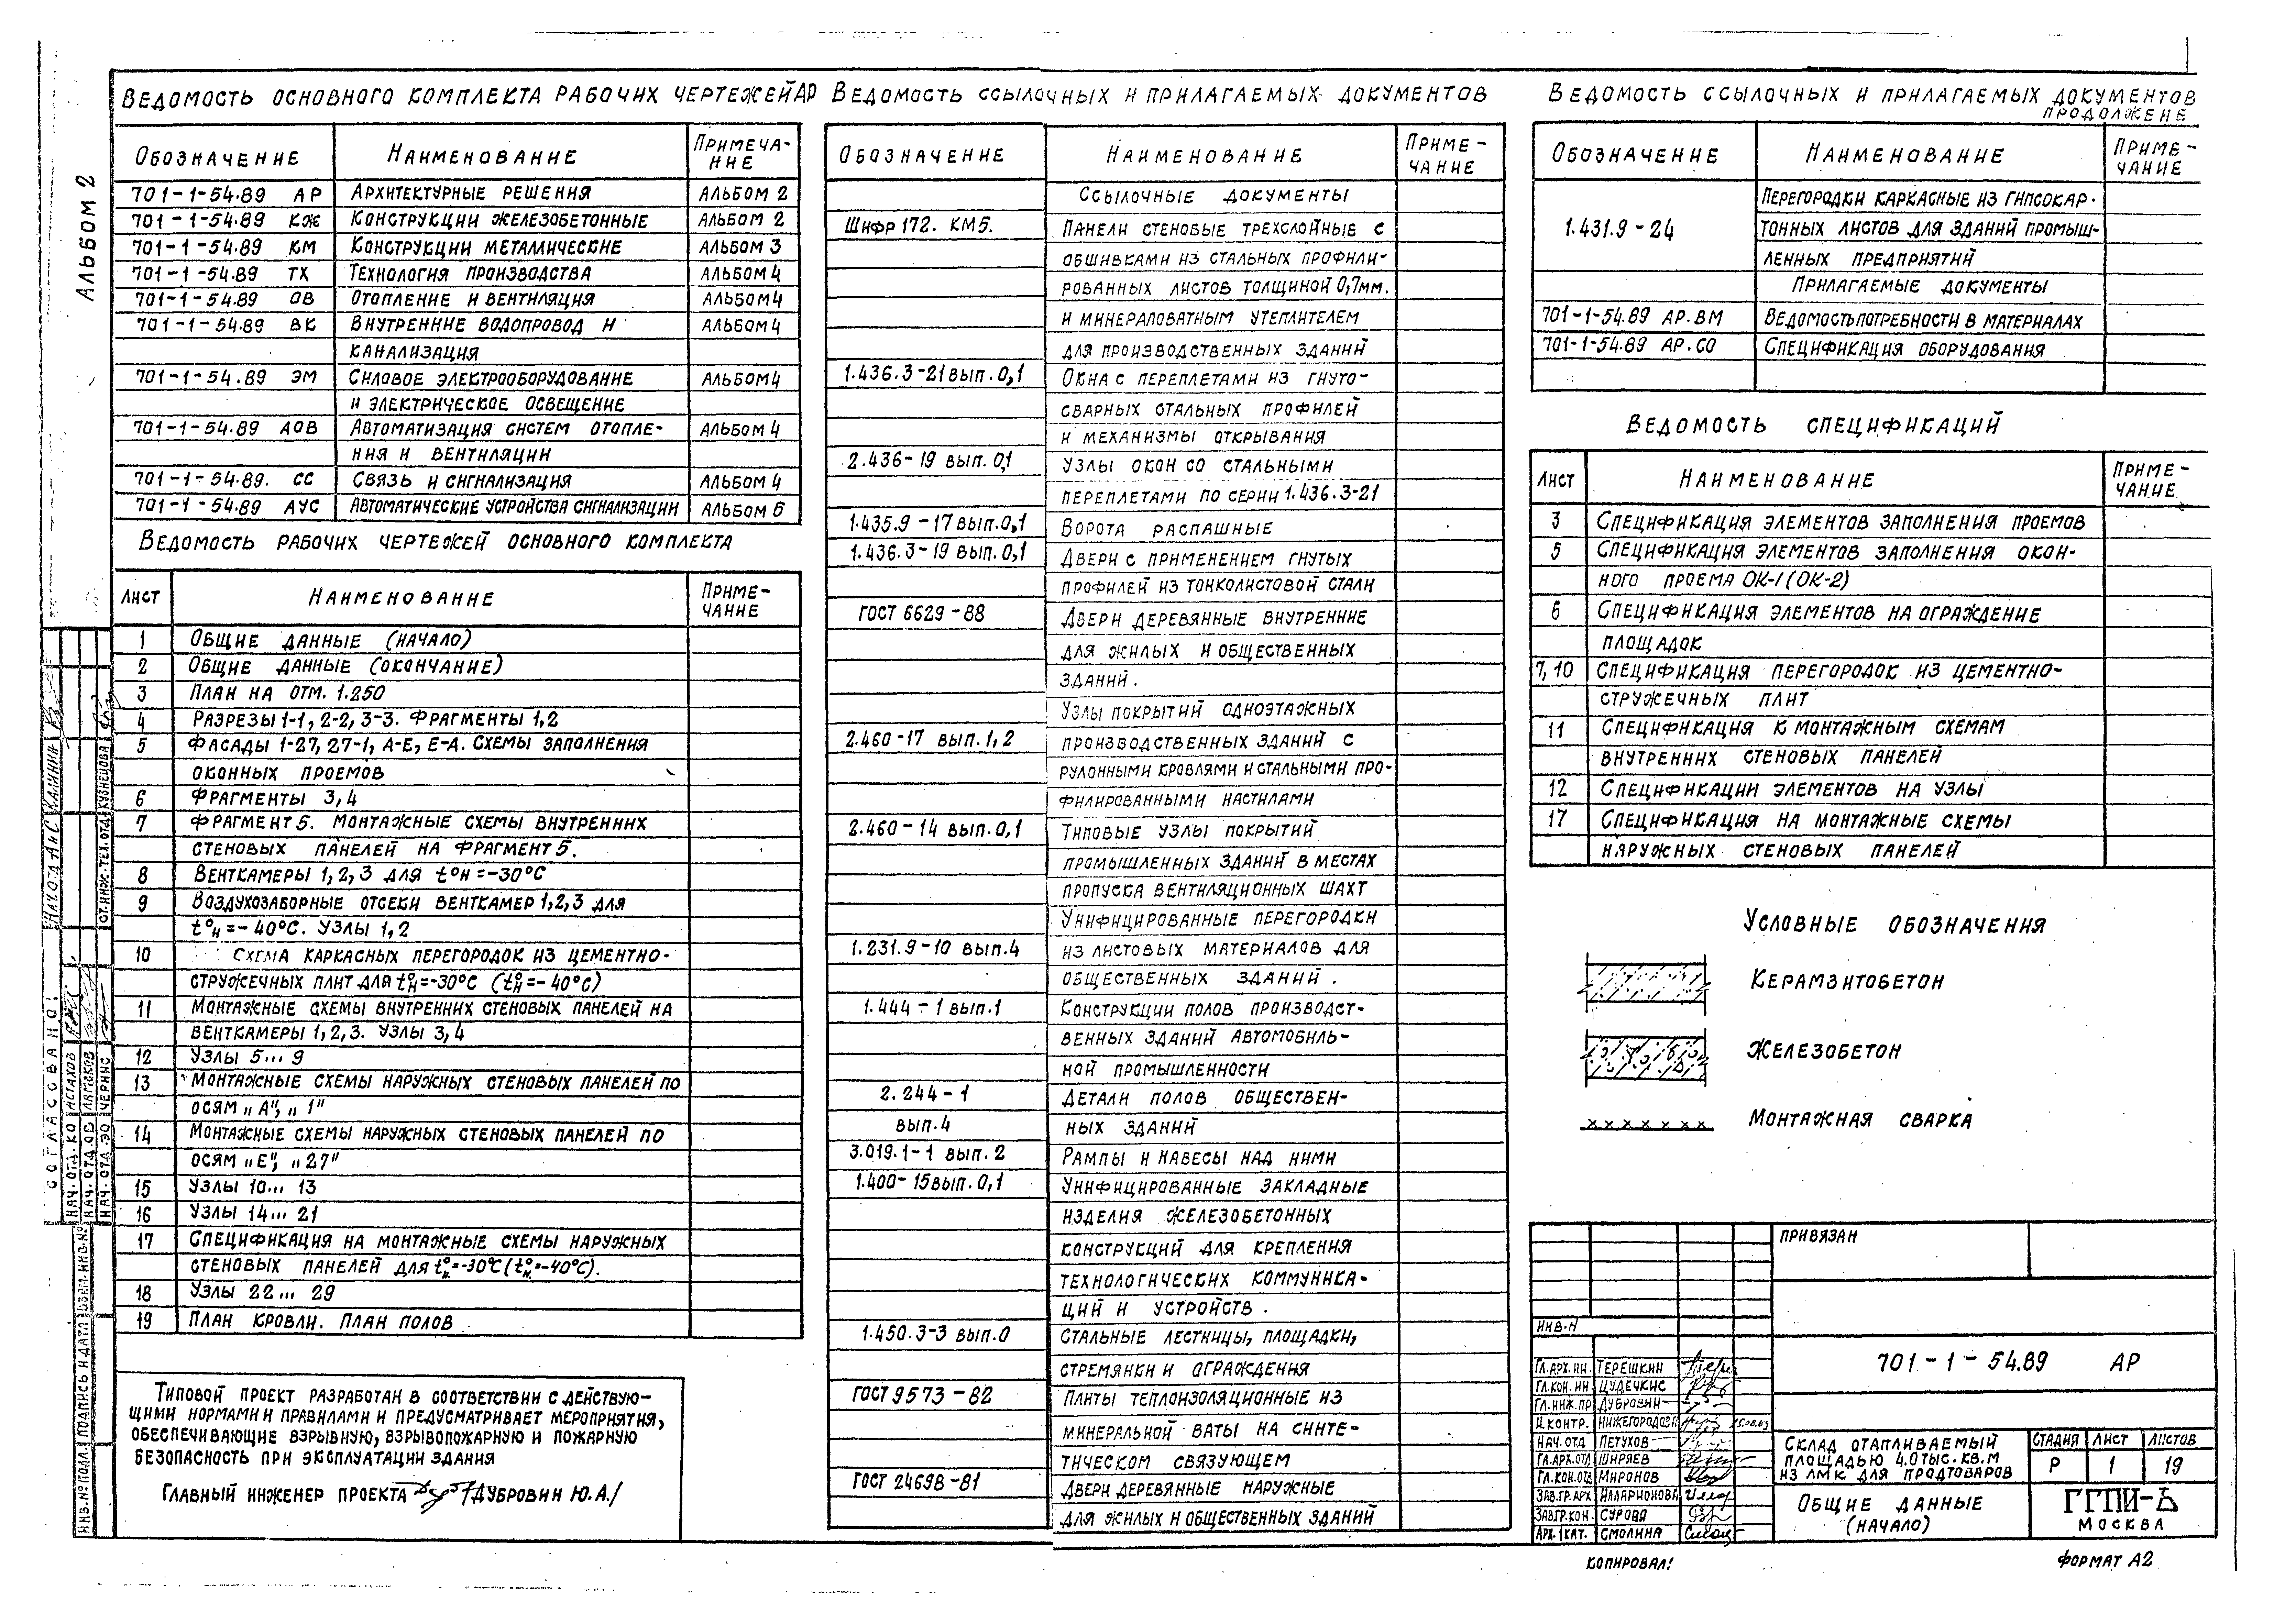 Альбом 2
Ведомость основного комплекта рабочих чертежей АР
Обозначение Наименование Примеча-
ние
701-1-54.89 АР Архитектурные решения Альбом 2
701-1-54.89 КЖ Конструкции железобетонные Альбом 2
701-1-54.89 КМ Конструкции металлические Альбом 3
701-1-54.89 ТХ Технология производства Альбом 4
701-1-54.89 ОВ Отопление и вентиляция Альбом 4
701-1-54.89 ВК Внутренние водопровод и Альбом 4
канализация
701-1-54.89 ЭМ Силовое электрооборудование Альбом 4
и электрическое освещение
701-1-54.89 АОВ Автоматизация систем отопле- Альбом 4
ния и вентиляции
701-1-54.89. СС Связь и сигнализация Альбом 4
701-1-54.89 АУС Автоматические устройства сигнализации Альбом 5
Ведомость рабочих чертежей основного комплекта
Лист Наименование Приме-
чание
1 Общие данные (начало)
2 Общие данные (окончание)
3 План на отм. 1.250
4 Разрезы 1-1, 2-2, 3-3. Фрагменты 1,2
5 Фасады 1-27, 27-1, А-Е, Е-А. Схемы заполнения
оконных проемов
6 Фрагменты 3,4
7 Фрагмент 5. Монтажные схемы внутренних
стеновых панелей на фрагмент 5.
8 Венткамеры 1,2,3 для t°н=-30°С
9 Воздухозаборные отсеки венткамер 1,2,3 для
t°н=-40°С. Узлы 1,2
10 Схема каркасных перегородок из цементно-
стружечных плит для t°н=-30°С (t°н=-40°С)
11 Монтажные схемы внутренних стеновых панелей на
венткамеры 1,2,3. Узлы 3,4
12 Узлы 5... 9
13 Монтажные схемы наружных стеновых панелей по
осям „А“, „1“
14 Монтажные схемы наружных стеновых панелей по
осям „Е“, „27“
15 Узлы 10... 13
16 Узлы 14... 21
17 Спецификация на монтажные схемы наружных
стеновых панелей для t°н=-30°С (t°н=-40°С).
18 Узлы 22... 29
19 План кровли. План полов
Типовой проект разработан в соответствии с действую-
щими нормами и правилами и предусматривает мероприятия,
обеспечивающие взрывную, взрывопожарную и пожарную
безопасность при эксплуатации здания
Главный инженер проекта /Дубровин Ю.А./
Ведомость ссылочных и прилагаемых документов
Обозначение Наименование Приме-
чание
Ссылочные документы
Шифр 172. КМ5. Панели стеновые трехслойные с
обшивками из стальных профили-
рованных листов толщиной 0,7мм.
и минераловатным утеплителем
для производственных зданий
1.436.3-21 вып.0,1 Окна с переплетами из гнуто-
сварных стальных профилей
и механизмы открывания
2.436-19 вып.0,1 Узлы окон со стальными
переплетами по серии 1.436.3-21
1.435.9-17 вып.0,1 Ворота распашные
1.436.3-19 вып.0,1 Двери с применением гнутых
профилей из тонколистовой стали
ГОСТ 6629-88 Двери деревянные внутренние
для жилых и общественных
зданий.
Узлы покрытий одноэтажных
2.460-17 вып.1,2 производственных зданий с
рулонными кровлями и стальными про-
филированными настилами
2.460-14 вып.0,1 Типовые узлы покрытий
промышленных зданий в местах
пропуска вентиляционных шахт
Унифицированные перегородки
1.231.9-10 вып.4 из листовых материалов для
общественных зданий.
1.444-1 вып.1 Конструкции полов производст-
венных зданий автомобиль-
ной промышленности
2.244-1 Детали полов обществен-
вып.4 ных зданий
3.019.1-1 вып.2 Рампы и навесы над ними
1.400-15 вып.0,1 Унифицированные закладные
изделия железобетонных
конструкций для крепления
технологических коммуника-
ций и устройств.
1.450.3-3 вып.0 Стальные лестницы, площадки,
стремянки и ограждения
ГОСТ 9573-82 Плиты теплоизоляционные из
минеральной ваты на синте-
тическом связующем
ГОСТ 24698-81 Двери деревянные наружные
для жилых и общественных зданий
Ведомость ссылочных и прилагаемых документов
продолжене
Обозначение Наименование Приме-
чание
Перегородки каркасные из гипсокар-
1.431.9-24 тонных листов для зданий промыш-
ленных предприятий
Прилагаемые документы
701-1-54.89 АР.ВМ Ведомость потребности в материалах
701-1-54.89 АР.СО Спецификация оборудования
Ведомость спецификаций
Лист Наименование Приме-
чание
3 Спецификация элементов заполнения проемов
5 Спецификация элементов заполнения окон-
ного проема ОК-1 (ОК-2)
6 Спецификация элементов на ограждение
площадок
7, 10 Спецификация перегородок из цементно-
стружечных плит
11 Спецификация к монтажным схемам
внутренних стеновых панелей
12 Спецификации элементов на узлы
17 Спецификация на монтажные схемы
наружных стеновых панелей
Условные обозначения
Керамзитобетон
Железобетон
Монтажная сварка
Привязан
Инв.н
701-1-54.89 АР
Гл.арх.ин. Терешкин
Гл.кон.ин Цудечкис
Гл.инж.пр Дубровин
Н.контр. Нижегородова
Нач.отд Петухов
Гл.арх.отд Ширяев
Гл.кон.отд Миронов
Зав.гр.арх Илларионова
Зав.гр.кон. Сурова
Арх.1кат. Смолина
Склад отапливаемый
площадью 4.0 тыс.кв.м
из ЛМК для продтоваров
Стадия Лист Листов
Р 1 19
Общие данные
(начало)
ГПИ-6
Москва
Копировал:
Формат А2
Согласовано:
Нач.отд.КО Астахов
Нач.отд.ОВ
Нач.отд ЭО Чернис
Нач.отд АиС Калинин
Ст.инж.тех.отд Кузнецова
Инв.№подл. Подпись и дата Взам.инв.№